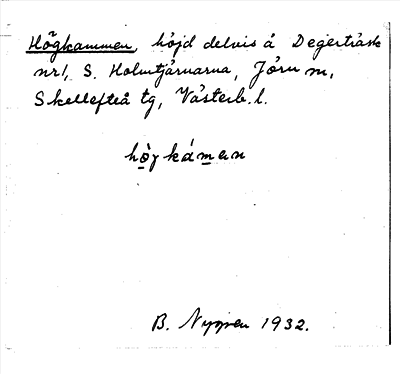 Högkammen, höjd delvis å Degerträsk
nr 1, S. Holmtjärnarna, Jörn m,
Skellefteå tg, Västerb. l.
hö̀jkámen
B. Nygren 1932.